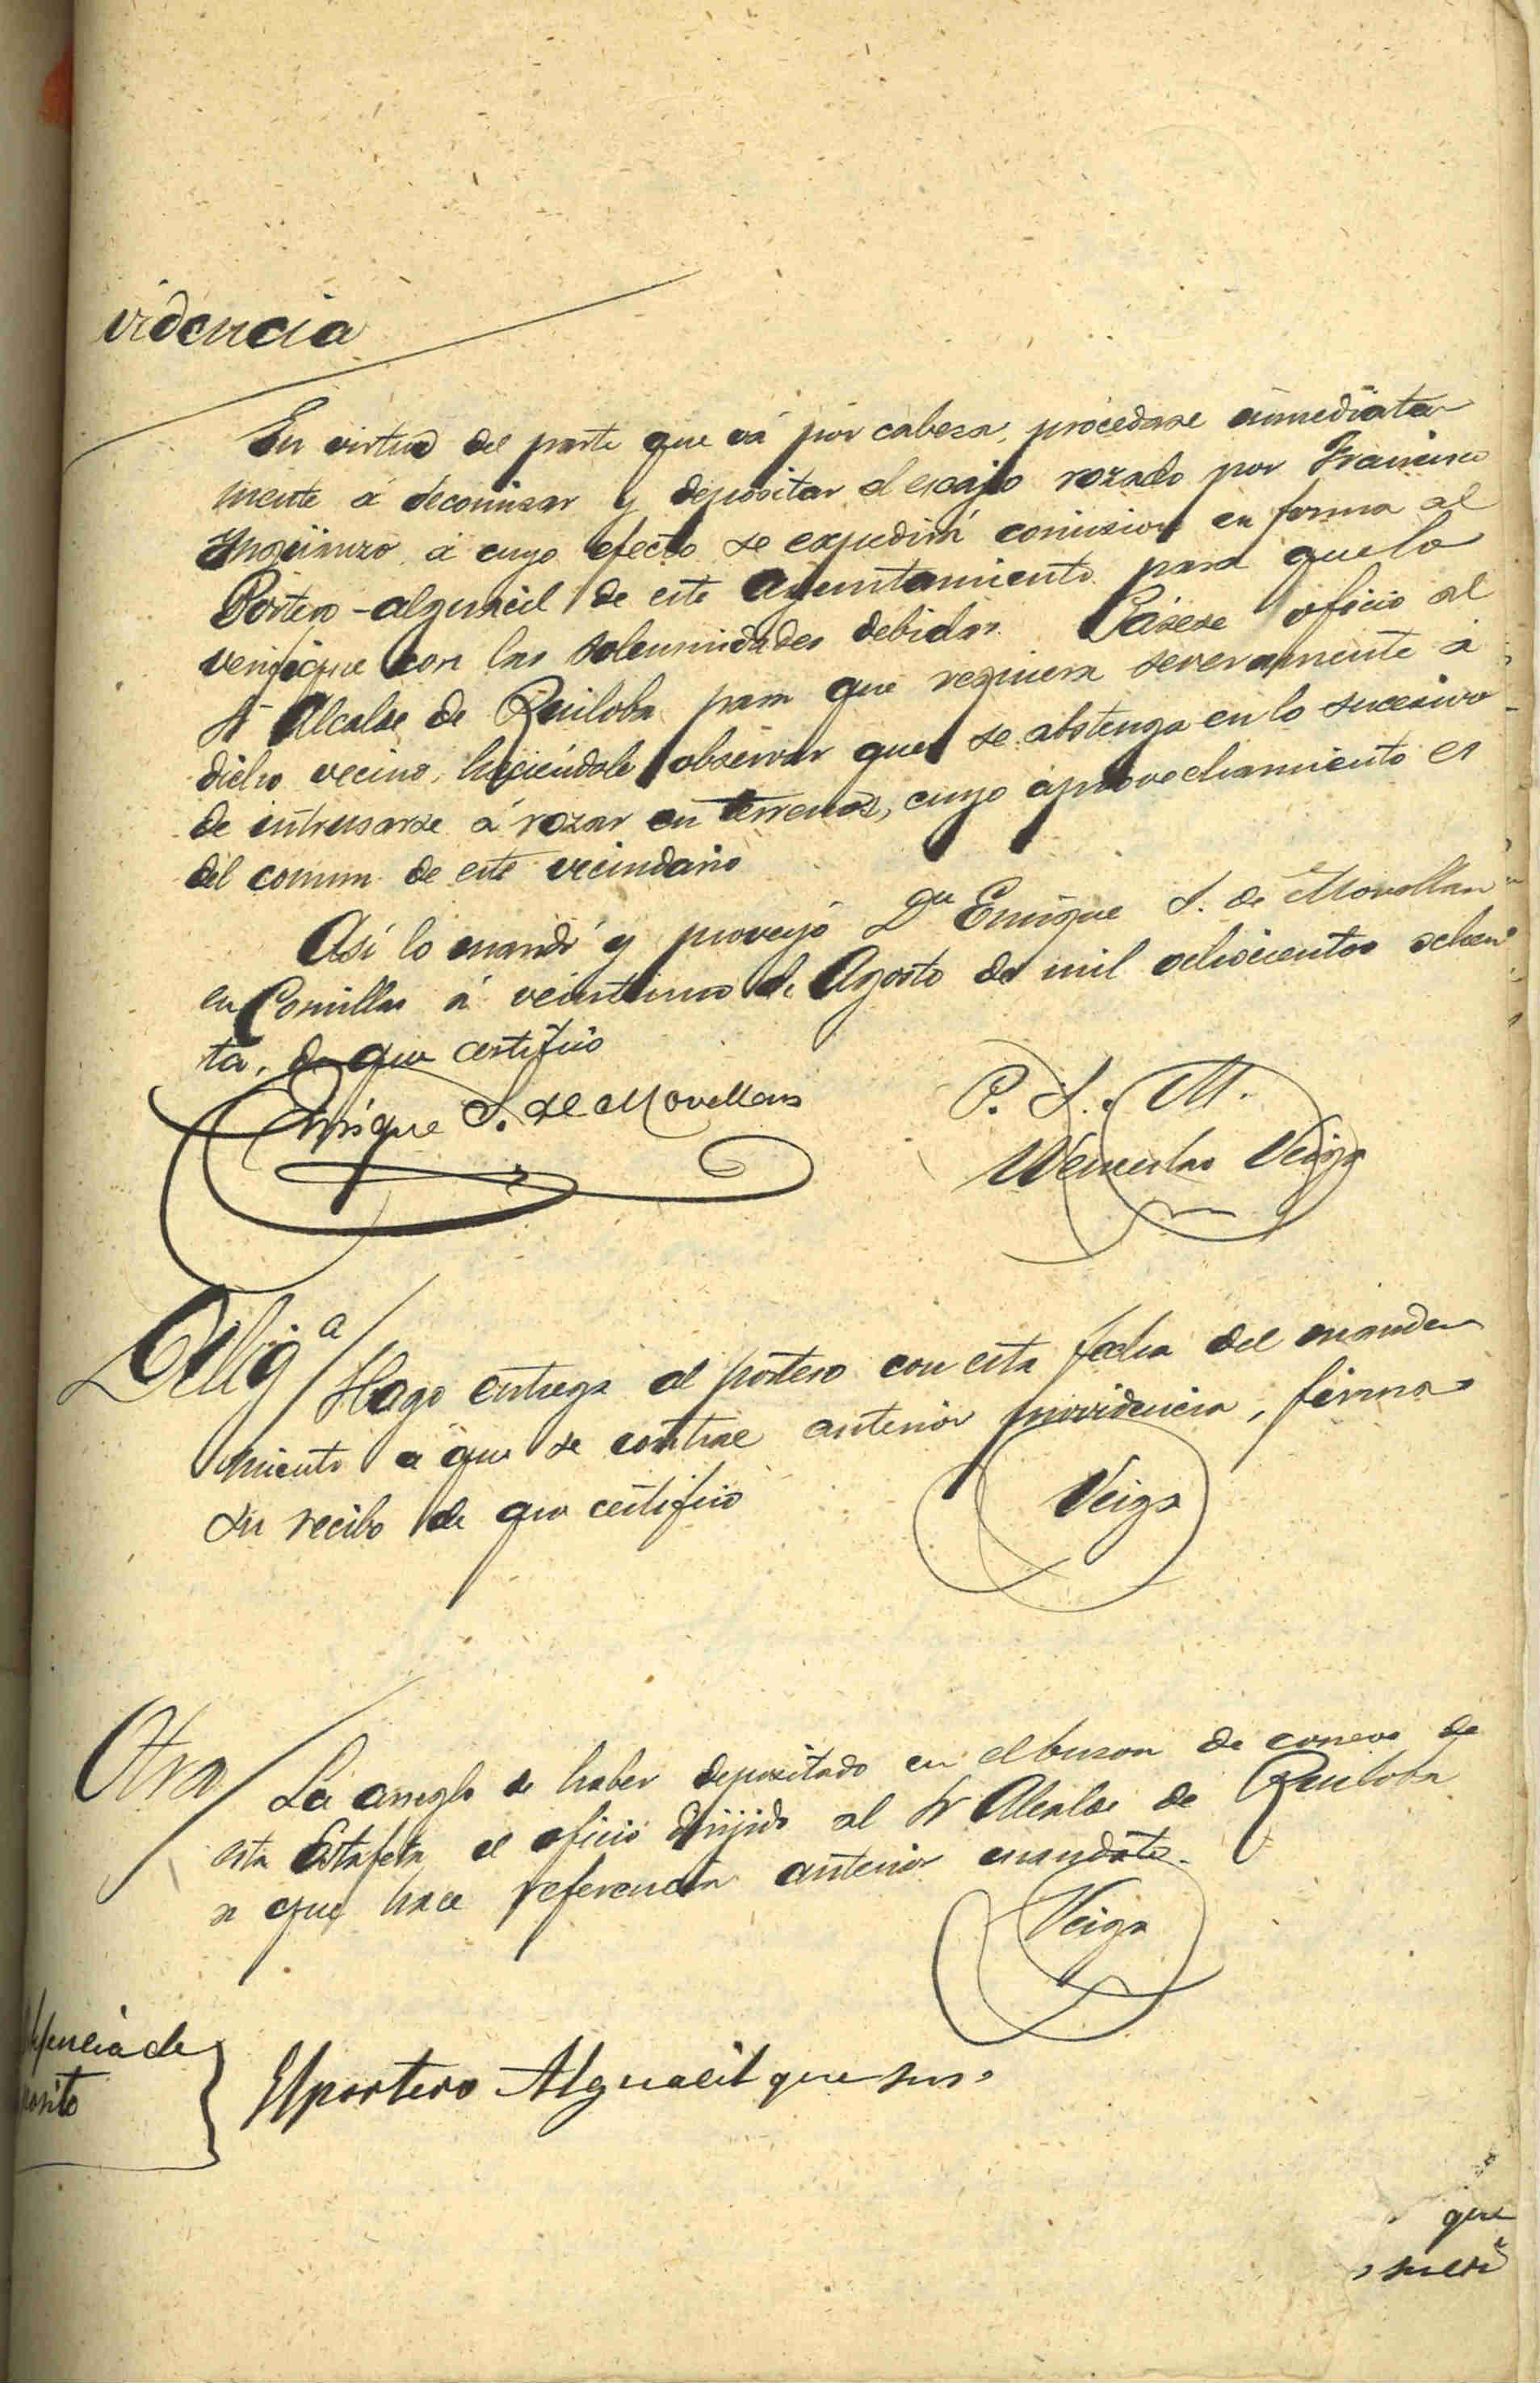 videncia
En virtud del parte que vá por cabeza, procédase inmediata
mente á decomisar y depositar el escajo rozado por Francisco
á cuyo efecto se expedirá comision en forma al
Portero-alguacil de este Ayuntamiento para que lo
verifique con las solemnidades debidas. Pásese oficio al
Sr Alcalde de Ruiloba para que requiera severamente á
dicho vecino, haciéndole observar que se abstenga en lo sucesivo
de intrusarse á rozar en terrenos, cuyo aprovechamiento es
del comun de este vecindario
Así lo mandó y proveyó Dn Enrique S. de Movellan
en Comillas á veintiuno de Agosto de mil ochocientos ochen
ta, de que certifico
Enrique S. de Movellan
P. S. M.
Wenceslao Veiga
Dilig.a / Hago entrega al portero con esta fecha del manda
miento a que se contrae anterior providencia, firma
su recibo de que certifico
Veiga
Otra / La arreglo de haber depositado en el buzon de correos de
esta Estafeta, el oficio dirijido al Sr Alcalde de Ruiloba
a que hace referencia anterior mandato.
Veiga
de
posito
El portero Alguacil que sus
que